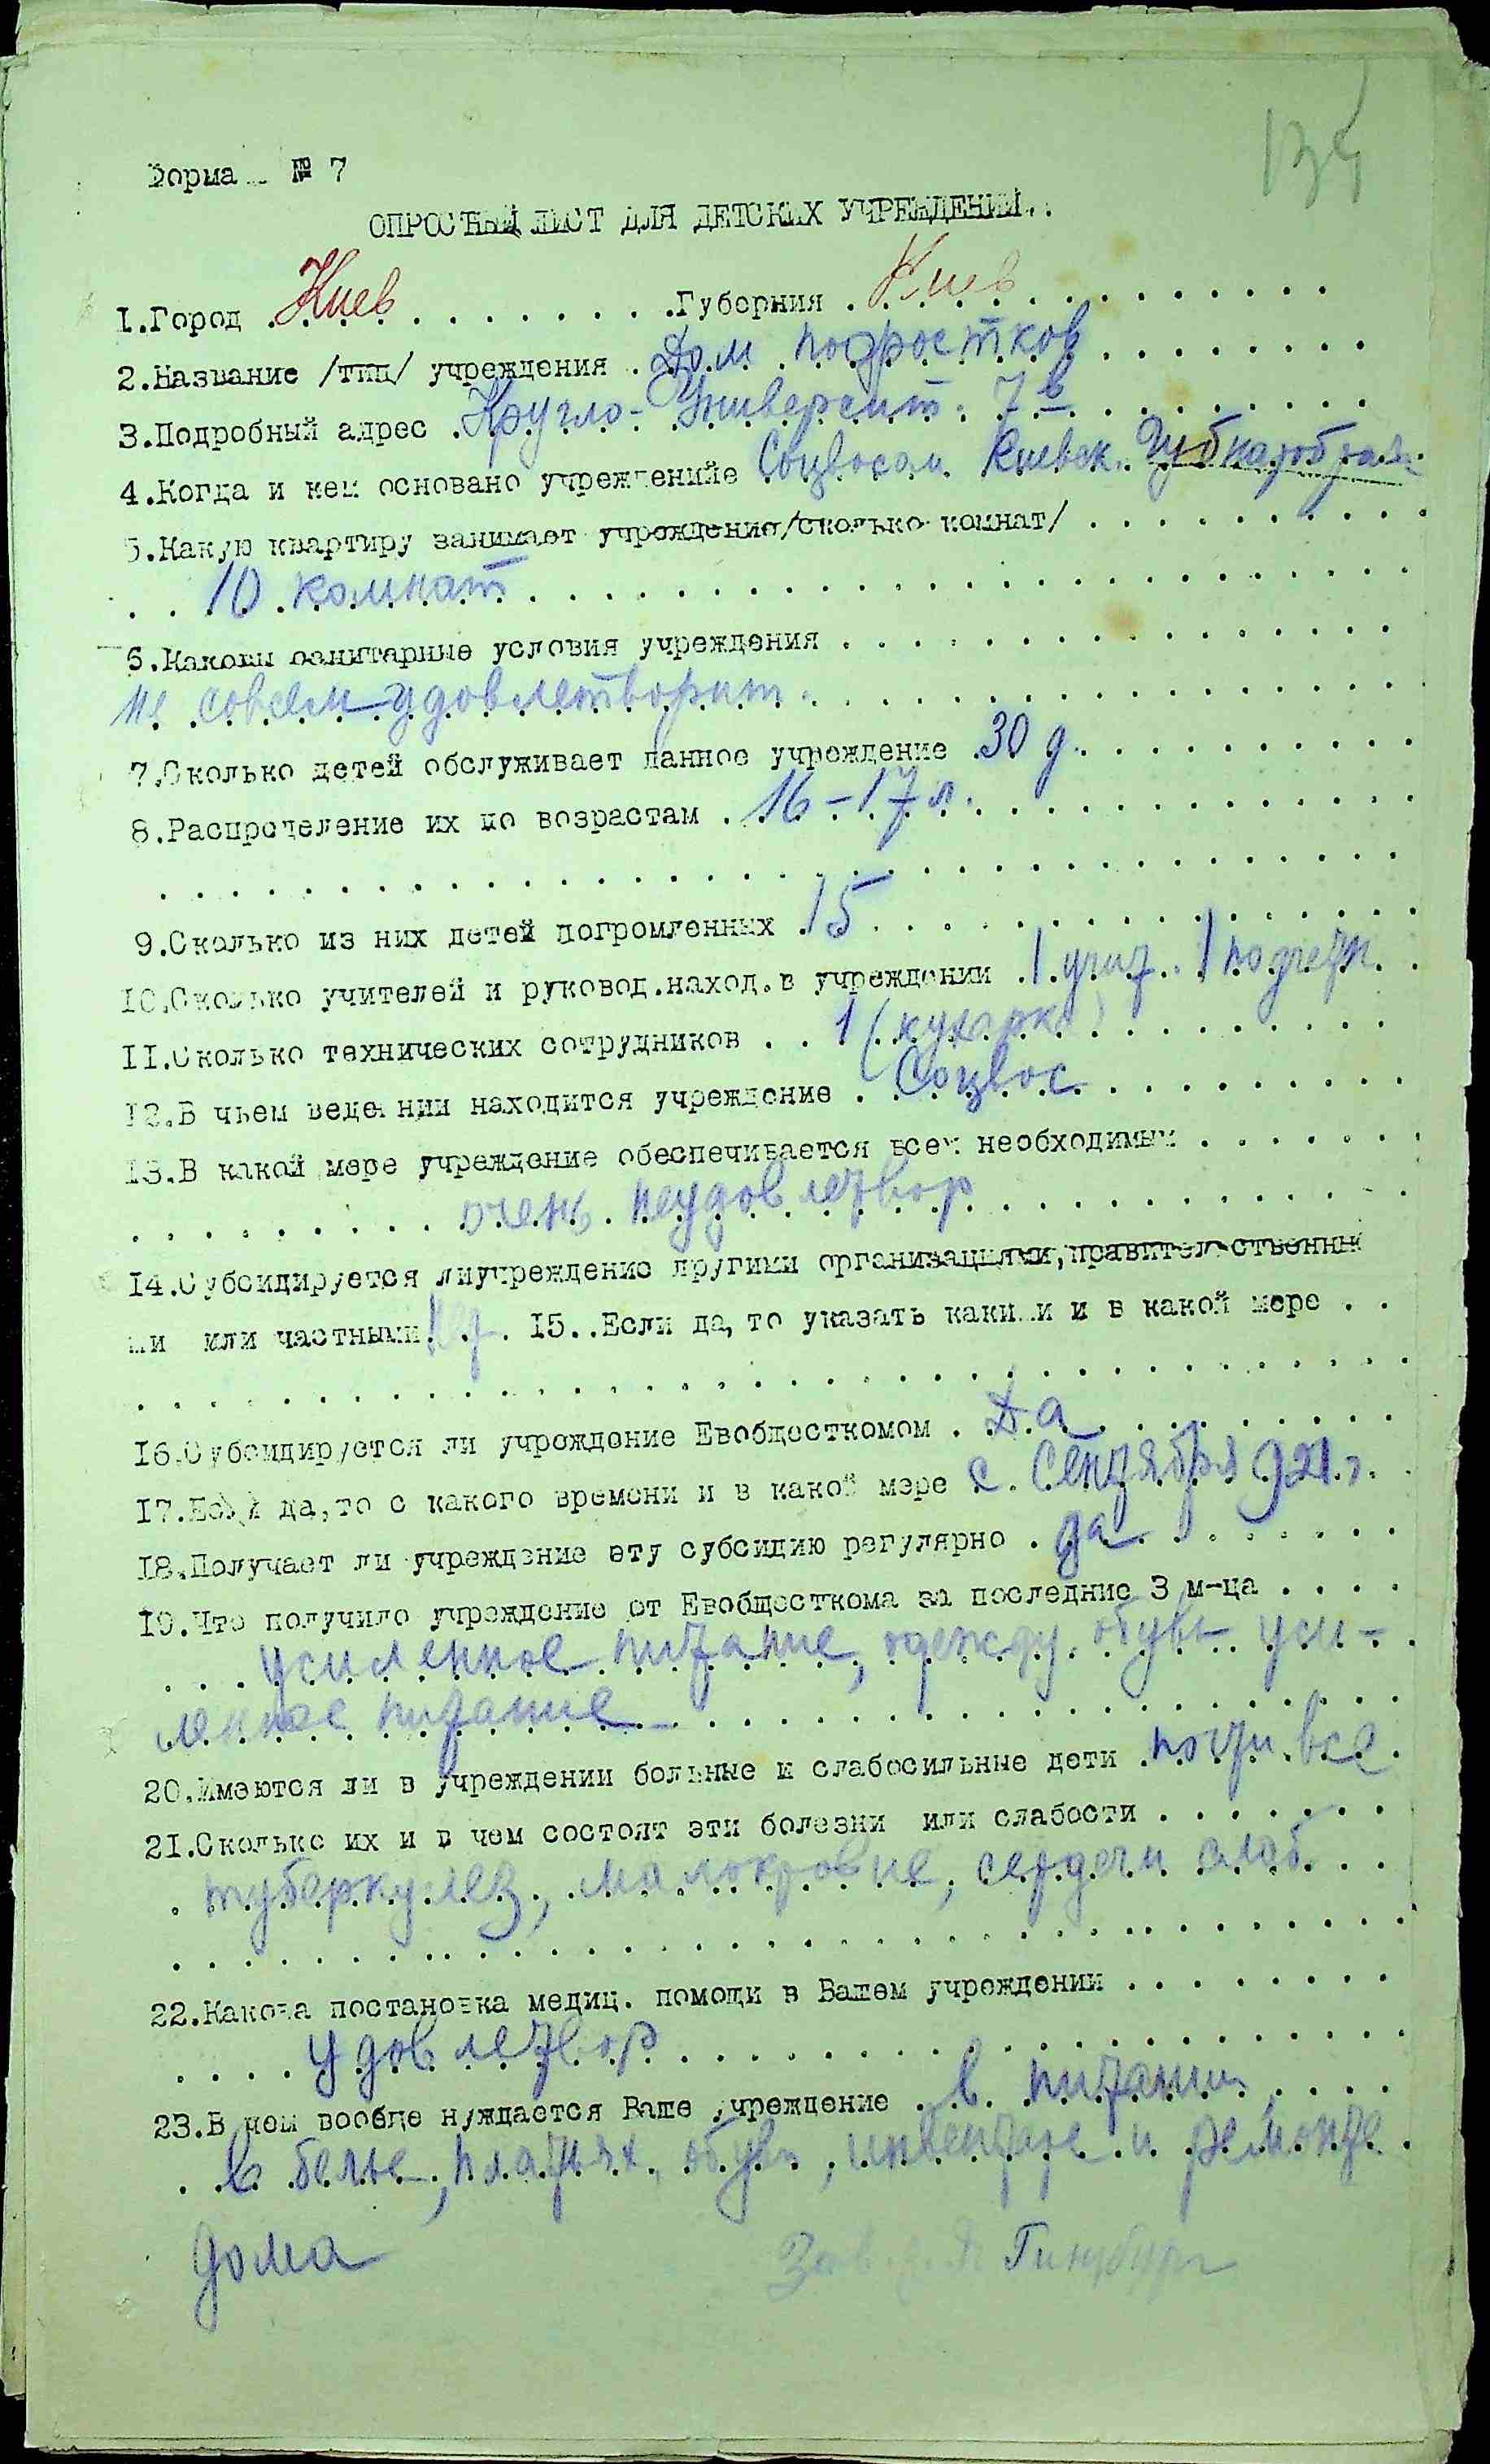 135
Форма № 7
ОПРОСНЫЙ ЛИСТ ДЛЯ ДЕТСКИХ УЧРЕЖДЕНИЙ.
1.Город Киев Губерния Киев
2.Название /тип/ учреждения Дом подростков
3.Подробный адрес Кругло-Университ. 7 в
4.Когда и кем основано учреждение Соцвосом Киевск. Губнаробраза
5.Какую квартиру занимает учреждение/сколько комнат/
10 комнат
6.Каковы санитарные условия учреждения
не совсем удовлетворит.
7.Сколько детей обслуживает данное учреждение 30 д.
8.Распределение их по возрастам 16-17 л.
9.Сколько из них детей погромленных 15
10.Сколько учителей и руковод.наход.в учреждении 1 учит. 1
11.Сколько технических сотрудников 1 (кухарка)
12.В чьем ведении находится учреждение Соцвос
13.В какой мере учреждение обеспечивается всем необходимым
очень неудовлетвор
14.Субсидируется ли учреждение другими организациями, правительственны
ми или частными 15..Если да, то указать какими и в какой мере
16.Субсидируется ли учреждение Евобщесткомом Да
17.Если да, то с какого времени и в какой мере с Сентября 921 г.
18.Получает ли учреждение эту субсидию регулярно да
19.Что получило учреждение от Евобщесткома за последние 3 м-ца
усиленное питание, одежду, обувь уси-
ленное питание
20.Имеются ли в учреждении больные и слабосильные дети почти все
21.Сколько их и в чем состоят эти болезни или слабости
туберкулез, малокровие, сердечн слаб
22.Какова постановка медиц. помощи в Вашем учреждении
удовлетвор
23.В чем вообще нуждается Ваше учреждение в питании,
в белье, платьях, обуви, инвентаре и ремонте
дома Зав. Гинзбург